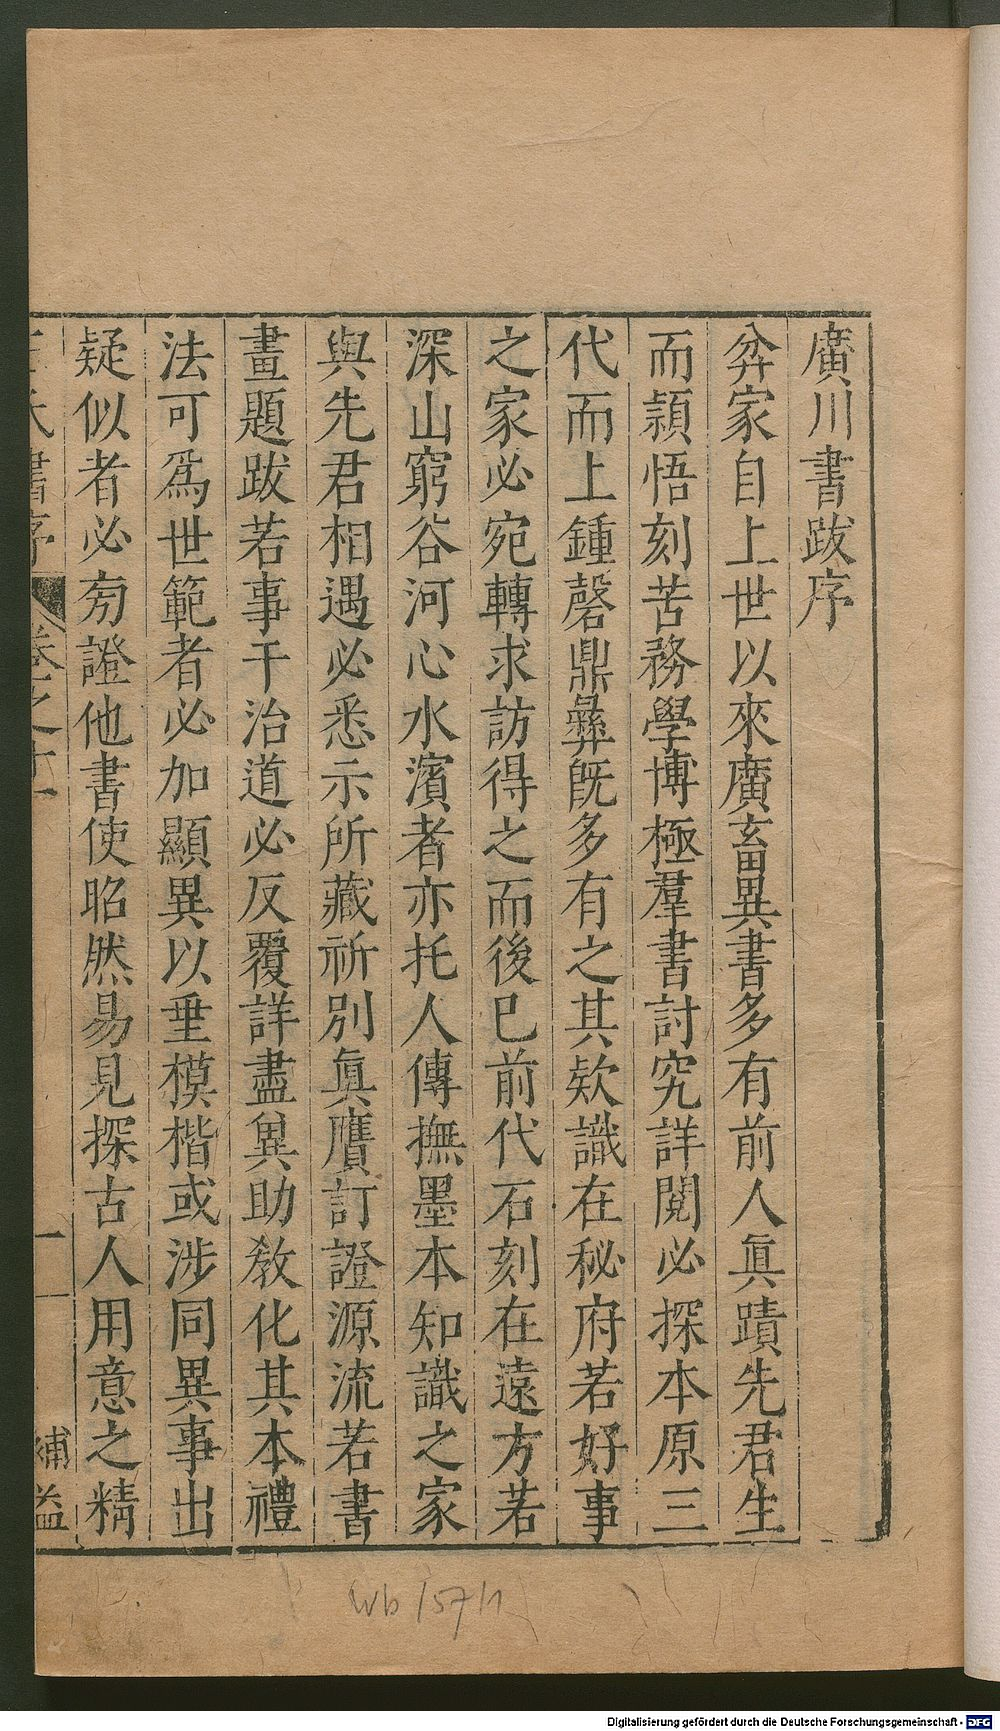 廣川書跋序
弅家自上世以來廣畜異書多有前人眞蹟先君生
而頴悟刻苦務學博極羣書討究詳閱必探本原三
代而上鍾磬鼎彝旣多有之其欵識在秘府若好事
之家必宛轉求訪得之而後已前代石刻在遠方若
深山窮谷河心水濱者亦托人傳撫墨本知識之家
與先君相遇必悉示所藏祈別眞贋訂證源流若書
畫題跋若事干治道必反覆詳盡兾助敎化其本禮
法可爲世範者必加顯異以垂模楷或涉同異事出
疑似者必㫄證他書使昭然易見探古人用意之精
王氏書序 卷之十一 二 補益
Wb 157/1
Digitalisierung gefördert durch die Deutsche Forschungsgemeinschaft - DFG